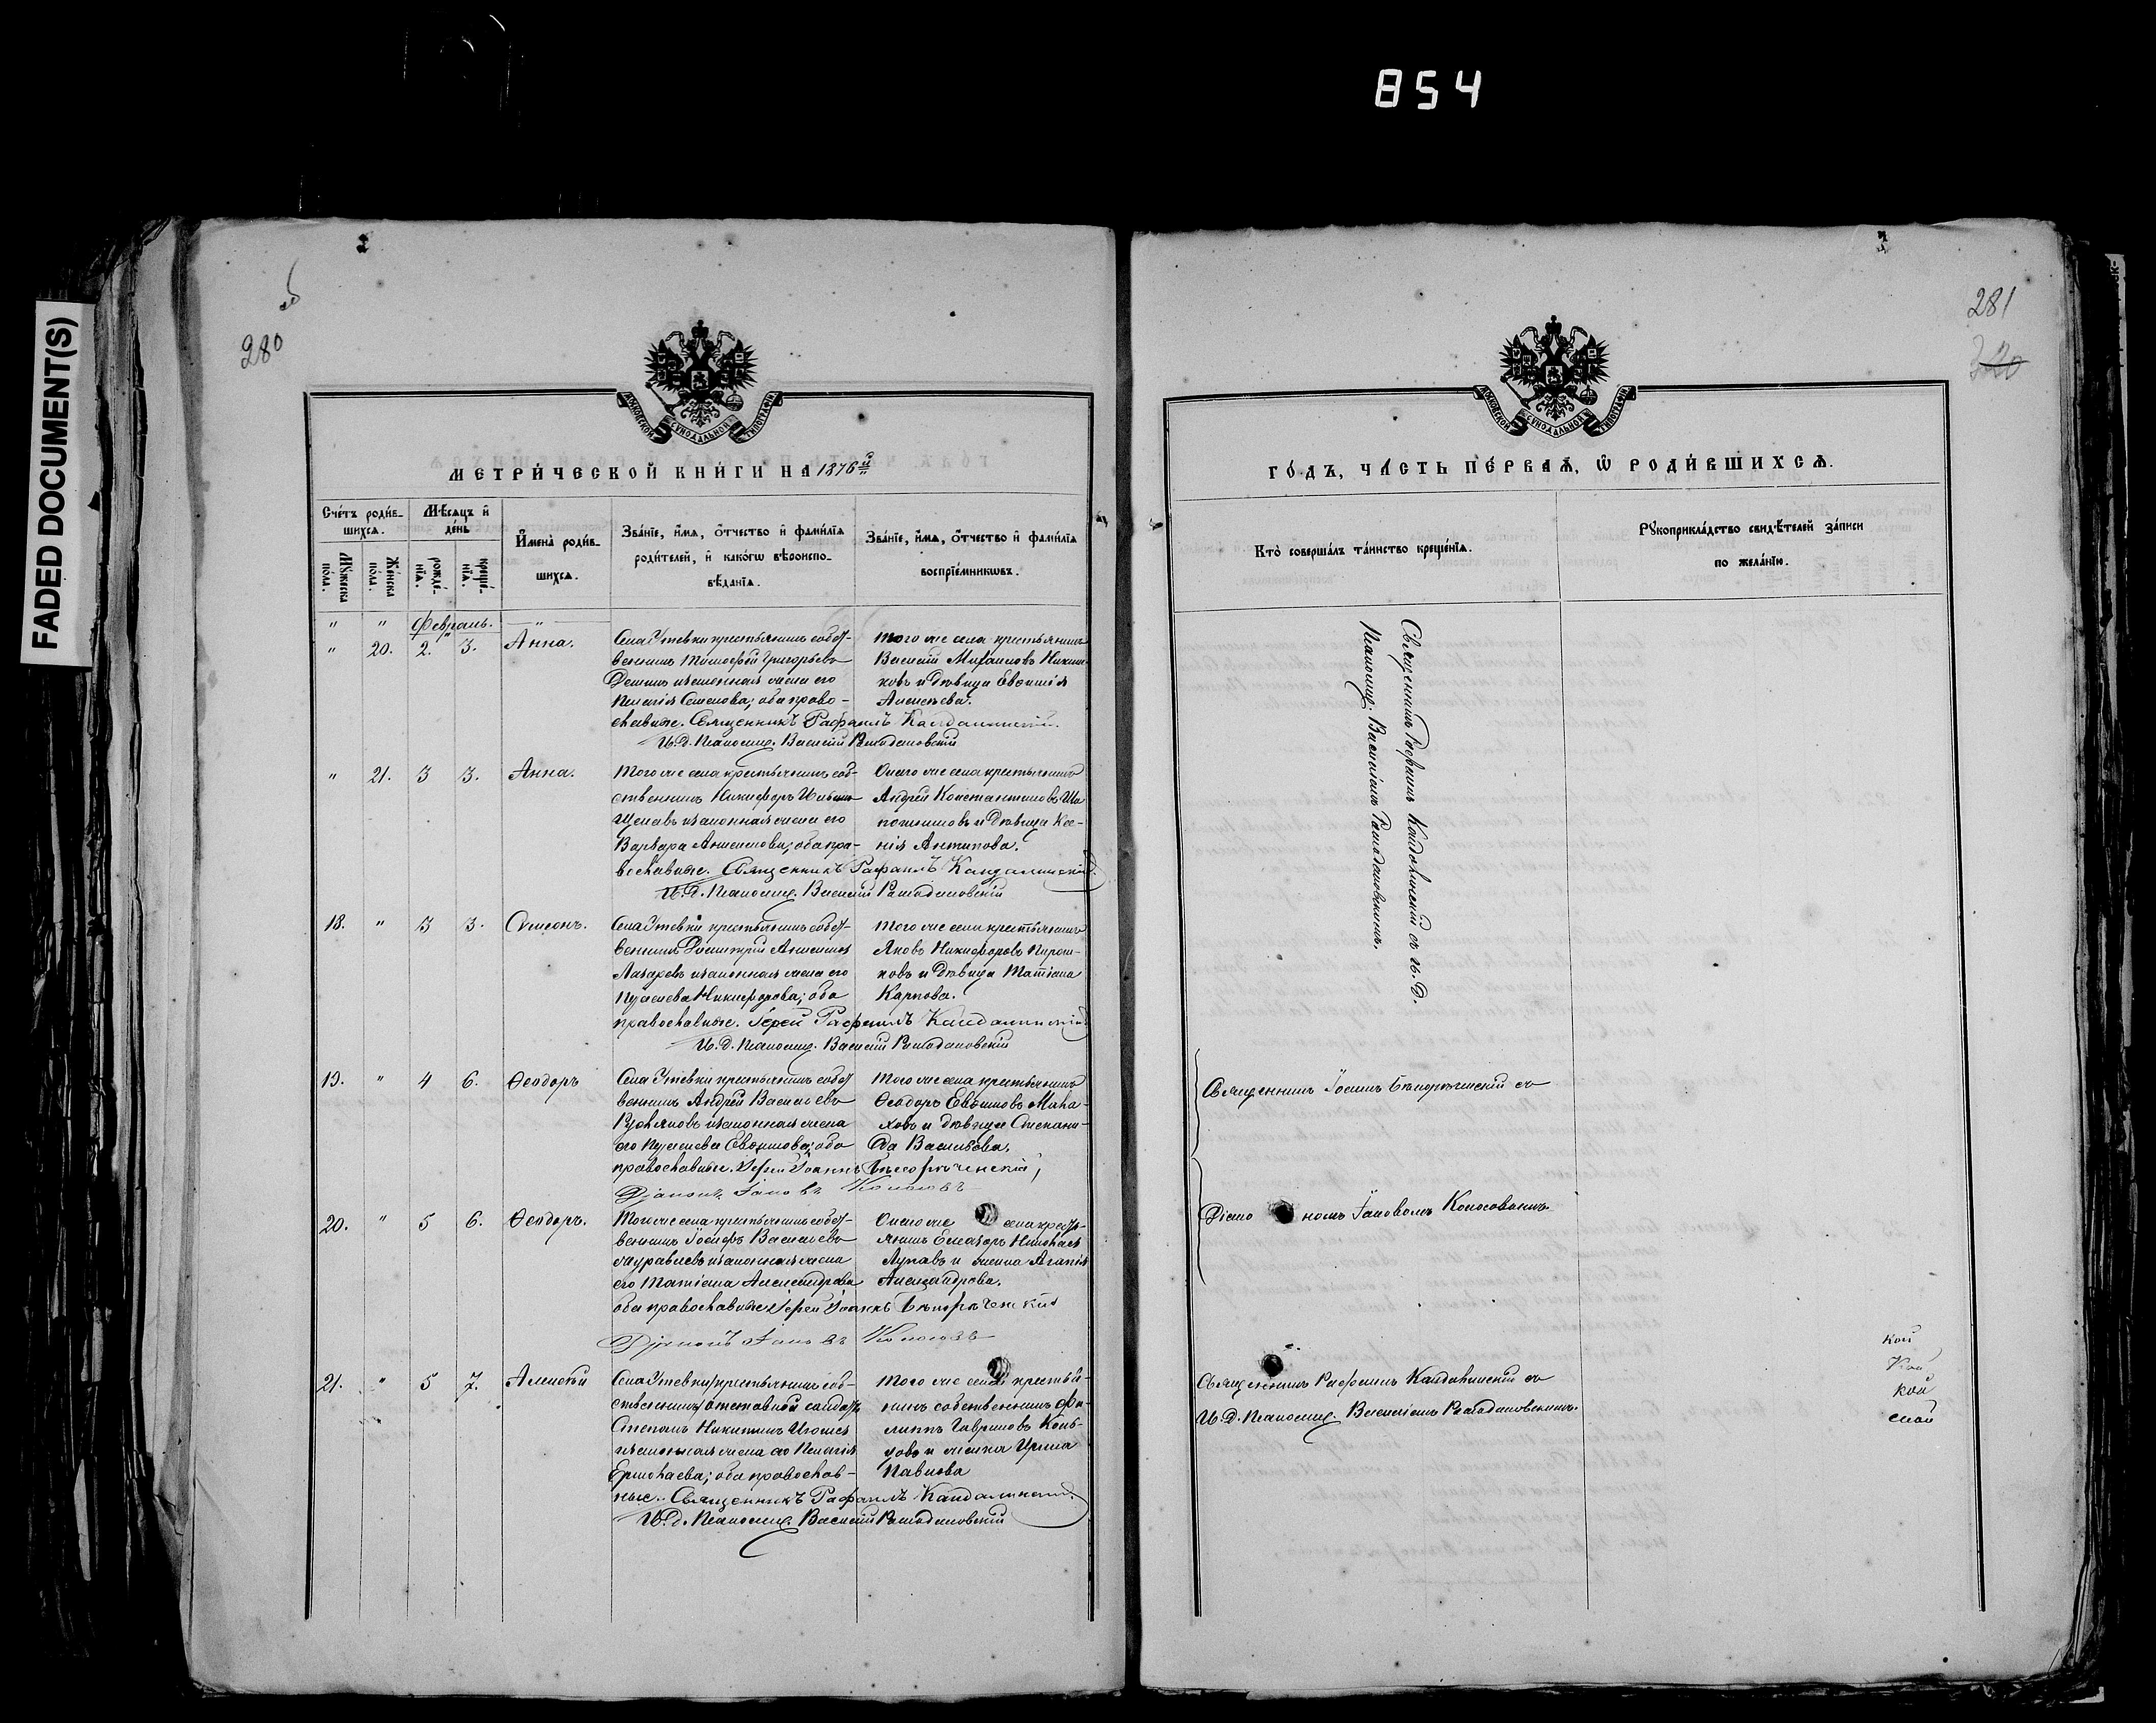 854
FADED DOCUMENT(S)
280
281
320
МОСКОВСКОЙ СѴНОДАЛЬНОЙ ТИПОГРАФІИ
МЕТРИ́ЧЕСКОЙ КНИ́ГИ НА 1876й
Сче́тъ роди́в-
шихсѧ.
Мꙋ́жеска по́ла.
Же́нска по́ла.
Мѣ́сѧцъ и҆
де́нь
рожде́-
нїѧ.
креще́-
нїѧ.
И҆мена̀ роди́в-
шихсѧ.
Зва́нїе, и҆́мѧ, ѻ҆́тчество и҆ фами́лїѧ
роди́телей, и҆ како́гѡ вѣроиспо-
вѣ́данїѧ.
Зва́нїе, и҆́мѧ, ѻ҆́тчество и҆ фами́лїѧ
воспрїе́мникѡвъ.
" " Февраль. "
" 20. 2. 3. Анна.
Села Утевки крестьянинъ собст-
венникъ Тимофей Григорьевъ
Деминъ и законная жена его
Пелагія Семенова; оба право-
славные. Священникъ Рафаилъ Кандалинскій.
И. Д. Псаломщ. Василій Рамадановскій
Того же села крестьянинъ
Василій Михаиловъ
ковъ и дѣвица Евѳимія
Алексѣева.
" 21. 3 3. Анна.
Того же села крестьянинъ соб-
ственникъ Никифоръ
и законная жена его
Варвара Анисимова; оба пра-
вославные. Священникъ Рафаилъ Кандалинскій.
И. Д. Псаломщ. Василій Рамадановскій
Онаго же села крестьянинъ
Андрей Константиновъ Ша
пошниковъ и дѣвица Ксе-
нія Антипова.
18. " 3 3. Сѵмеонъ.
Села Утевки крестьянинъ собст-
венникъ Димитрій Анисимов
Лазаревъ и законная жена его
Никифорова; оба
православные. Іерей Рафаилъ Кандалинскій
И. Д. Псаломщ. Василій Рамадановскій
Того же села крестьянинъ
Яковъ Никифоровъ Пирож-
ковъ и дѣвица Татіана
Карпова.
19. " 4 6. Ѳеодоръ
Села Утевки крестьянинъ собст
венникъ Андрей Васильевъ
и законная жена
его Евѳимова; оба
православные. Іерей Іоаннъ Бѣлорѣченскій,
Діаконъ Іаковъ Колосовъ
Того же села крестьянинъ
Ѳеодоръ Евѳимовъ Мала-
ховъ и дѣвица Степани-
да Васильева.
20. " 5 6. Ѳеодоръ.
Того же села крестьянинъ собст-
венникъ Іосифъ Васильевъ
Журавлевъ и законная жена
его Татіана Александрова
оба православные Іерей Іоаннъ Бѣлорѣченскій
Діаконъ Іаковъ Колосовъ
Онаго же села кресть-
янинъ Елеазаръ Николаев
Лупавъ и жена Агапія
Александрова.
21. " 5 7. Алексѣй
Села Утевки крестьянинъ соб-
ственникъ отставной солдатъ
Степанъ Никитинъ
и законная жена его Пелагія
Ермолаева; оба православ-
ные. Священникъ Рафаилъ Кандалинскій.
И. д. Псаломщ. Василій Рамадановскій
Того же села крестья-
нинъ собственникъ Фи-
липпъ Гавриловъ
и жена Ирина
Павлова
ГО́ДЪ, ЧА́СТЬ ПЕ́РВАѦ, Ѡ҆ РОДИ́ВШИХСѦ.
Кто̀ соверша́лъ та́инство креще́нїѧ.
Рꙋкоприкла́дство свидѣ́телей за́писи
по жела́нїю.
Священникъ Рафаилъ Кандалинскій съ и. д.
Псаломщ. Василіемъ Рамадановскимъ.
Священникъ Іоаннъ Бѣлорѣченскій съ
Діако номъ Іаковомъ Колосовымъ
Священникъ Рафаилъ Кандалинскій съ
И. Д. Псаломщ. Василіемъ Рамадановскимъ.
кой
кой
кой
ской